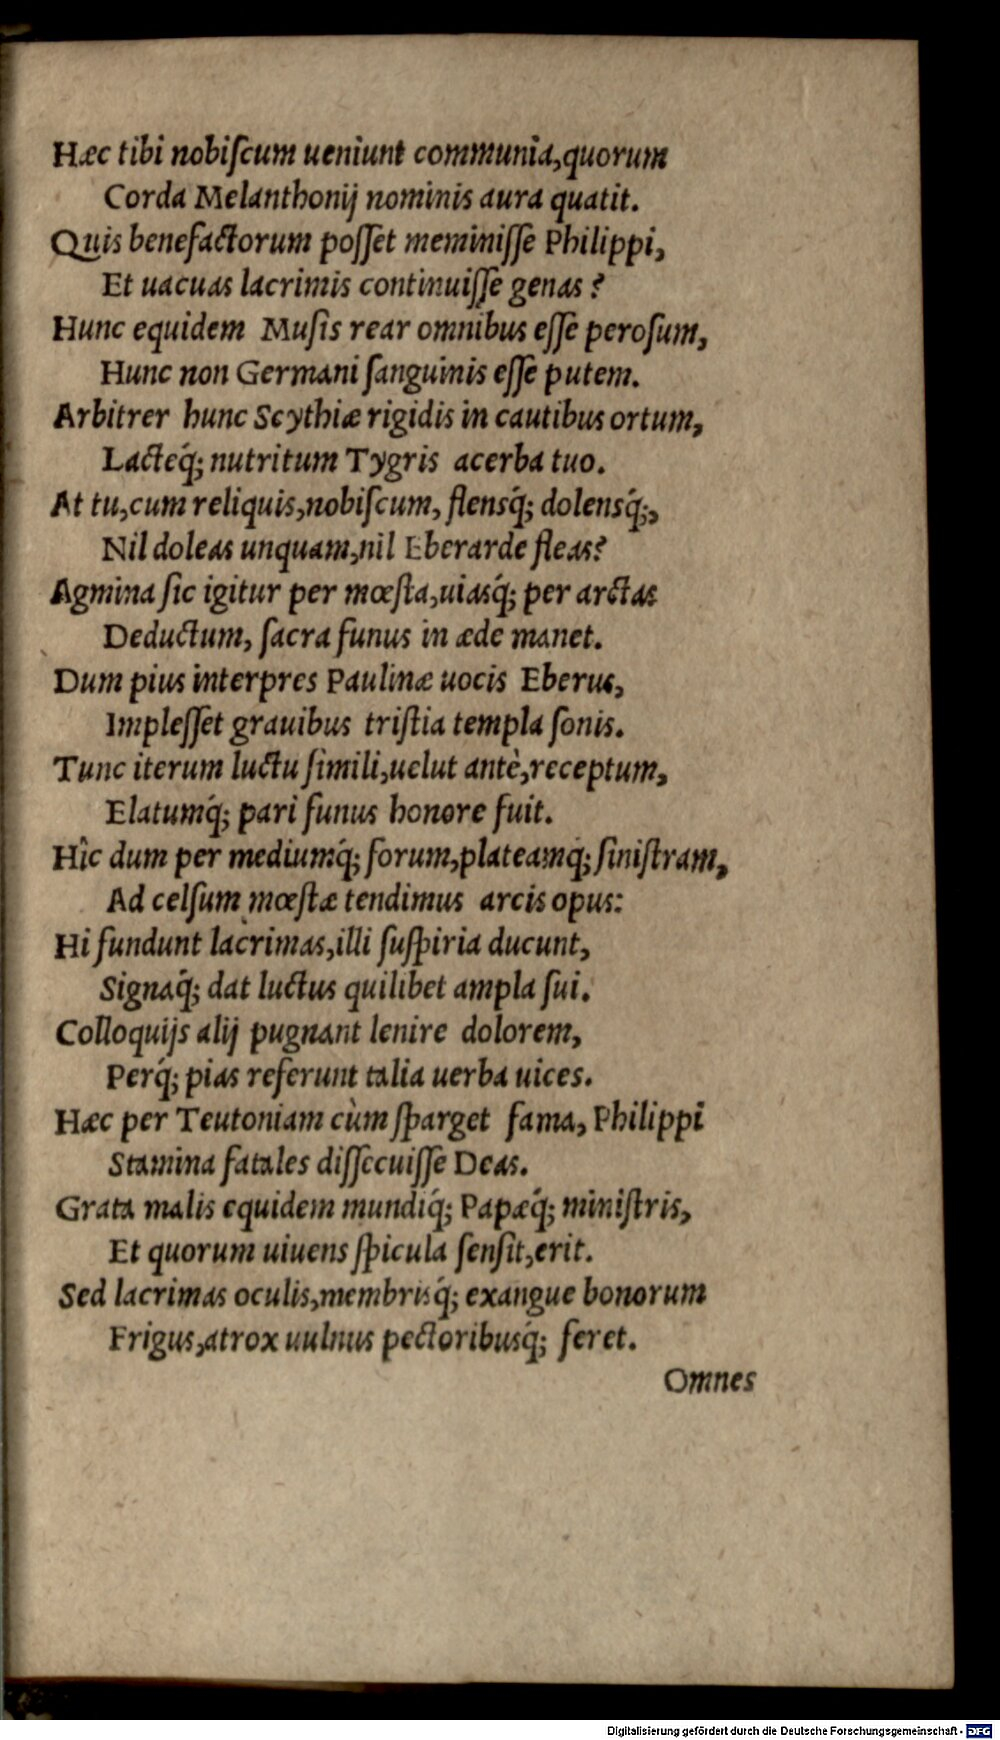 Hæc tibi nobiſcum ueniunt communia,quorum
Corda Melanthonij nominis aura quatit.
Quis benefactorum poſſet meminiſſe Philippi,
Et uacuas lacrimis continuiſſe genas ?
Hunc equidem Muſis rear omnibus eſſe peroſum,
Hunc non Germani ſanguinis eſſe putem.
Arbitrer hunc Scythiæ rigidis in cautibus ortum,
Lacteq́; nutritum Tygris acerba tuo.
At tu,cum reliquis,nobiſcum, flensq́; dolensq́;,
Nil doleas unquam,nil Eberarde fleas?
Agmina ſic igitur per mœſta,uiasq́; per arctas
Deductum, ſacra funus in æde manet.
Dum pius interpres Paulinæ uocis Eberus,
Impleſſet grauibus triſtia templa ſonis.
Tunc iterum luctu ſimili,uelut antè,receptum,
Elatumq́; pari funus honore fuit.
Hîc dum per mediumq́; forum,plateamq́; ſiniſtram,
Ad celſum mœſtæ tendimus arcis opus:
Hi fundunt lacrimas,illi ſuſpiria ducunt,
Signaq́; dat luctus quilibet ampla ſui.
Colloquijs alij pugnant lenire dolorem,
Perq́; pias referunt talia uerba uices.
Hæc per Teutoniam cùm ſparget fama, Philippi
Stamina fatales diſſecuiſſe Deas.
Grata malis equidem mundiq́; Papæq́; miniſtris,
Et quorum uiuens ſpicula ſenſit,erit.
Sed lacrimas oculis,membrisq́; exangue bonorum
Frigus,atrox uulnus pectoribusq́; feret.
Omnes
Digitalisierung gefördert durch die Deutsche Forschungsgemeinschaft - DFG